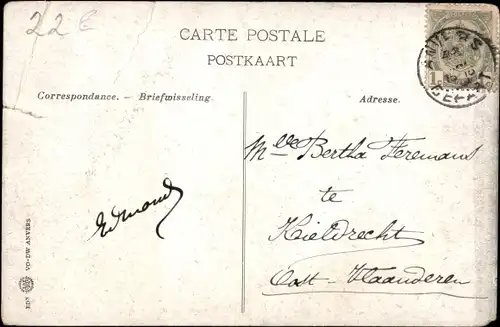 22 €
CARTE POSTALE
POSTKAART
Correspondance. — Briefwisseling.
Adresse.
ANVERS
DEPART
1
Mlle Bertha Feremans
te
Kieldrecht
Oost-Vlaanderen
Edmond
EDN VO-DW ANVERS